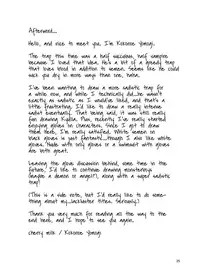 Afterword...
Hello, and nice to meet you, I'm Kokonoe Yonagi.
The trap this time was a half succubus, half vampire
because I loved that idea. He's a bit of a greedy trap
that loves blood in addition to semen. Seems like he could
suck you dry in more ways than one, haha.
I've been wanting to draw a more sadistic trap for
a while now, and while I technically did...he wasn't
exactly as sadistic as I would've liked, and that's a
little frustrating. I'd like to draw a really intense
sadist eventually. That being said, it was still really
fun drawing Judia. Plus, recently I've really started
enjoying gloves on characters. Since I got to draw
them here, I'm really satisfied. White semen on
black gloves is just fantastic...though I also like white
gloves. Nude with only gloves or a swimsuit with gloves
are both great.
Leaving the glove discussion behind, some time in the
future, I'd like to continue drawing monsterboys
(maybe a demon or angel?), along with a super sadistic
trap.
(This is a side note, but I'd really like to do some-
thing about my lackluster titles. Seriously.)
Thank you very much for reading all the way to the
end here, and I hope to see you again.
cherry milk / Kokonoe Yonagi